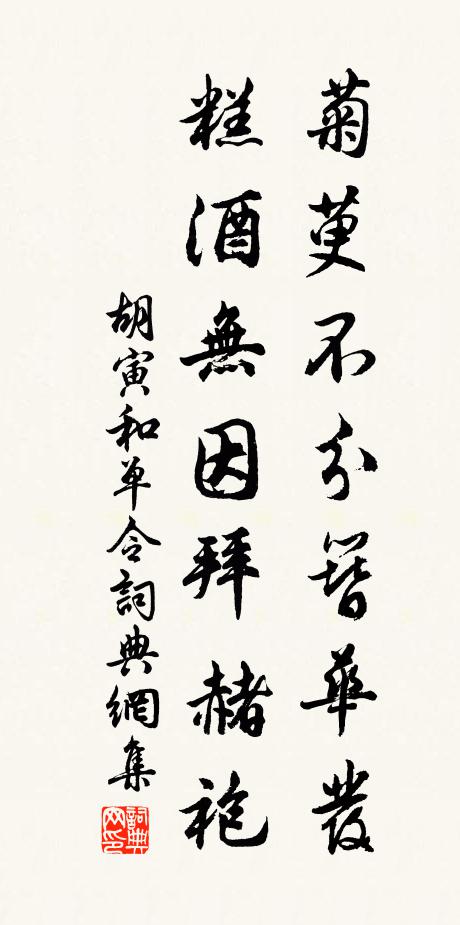 菊萸不分簪華髮
糕酒無因拜赭袍
胡寅和单令詞典網集
詞典网印